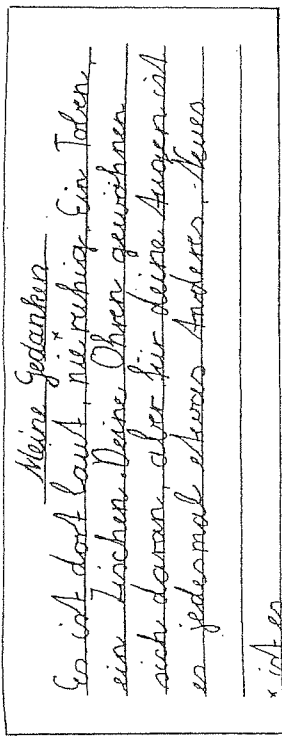 Meine Gedanken
Es ist dort laut, nie * ruhig. Ein Toben,
ein Zischen. Deine Ohren gewöhnen
sich daran, aber für deine Augen ist
es jedesmal etwas Anderes, Neues
* ist es